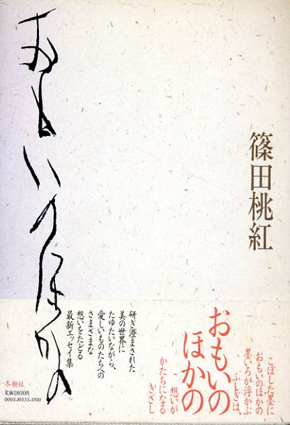 おもいのほかの
篠田桃紅
こぼした墨に
おもいのほかの
墨いろが浮かぶ
ふしぎは、
想いが
かたちになる
きざし
おもいの
ほかの
研ぎ澄まされた
美の世界に
たゆたいながら、
愛しいものたちへの
さまざまな
想いをたどる
最新エッセイ集
冬樹社